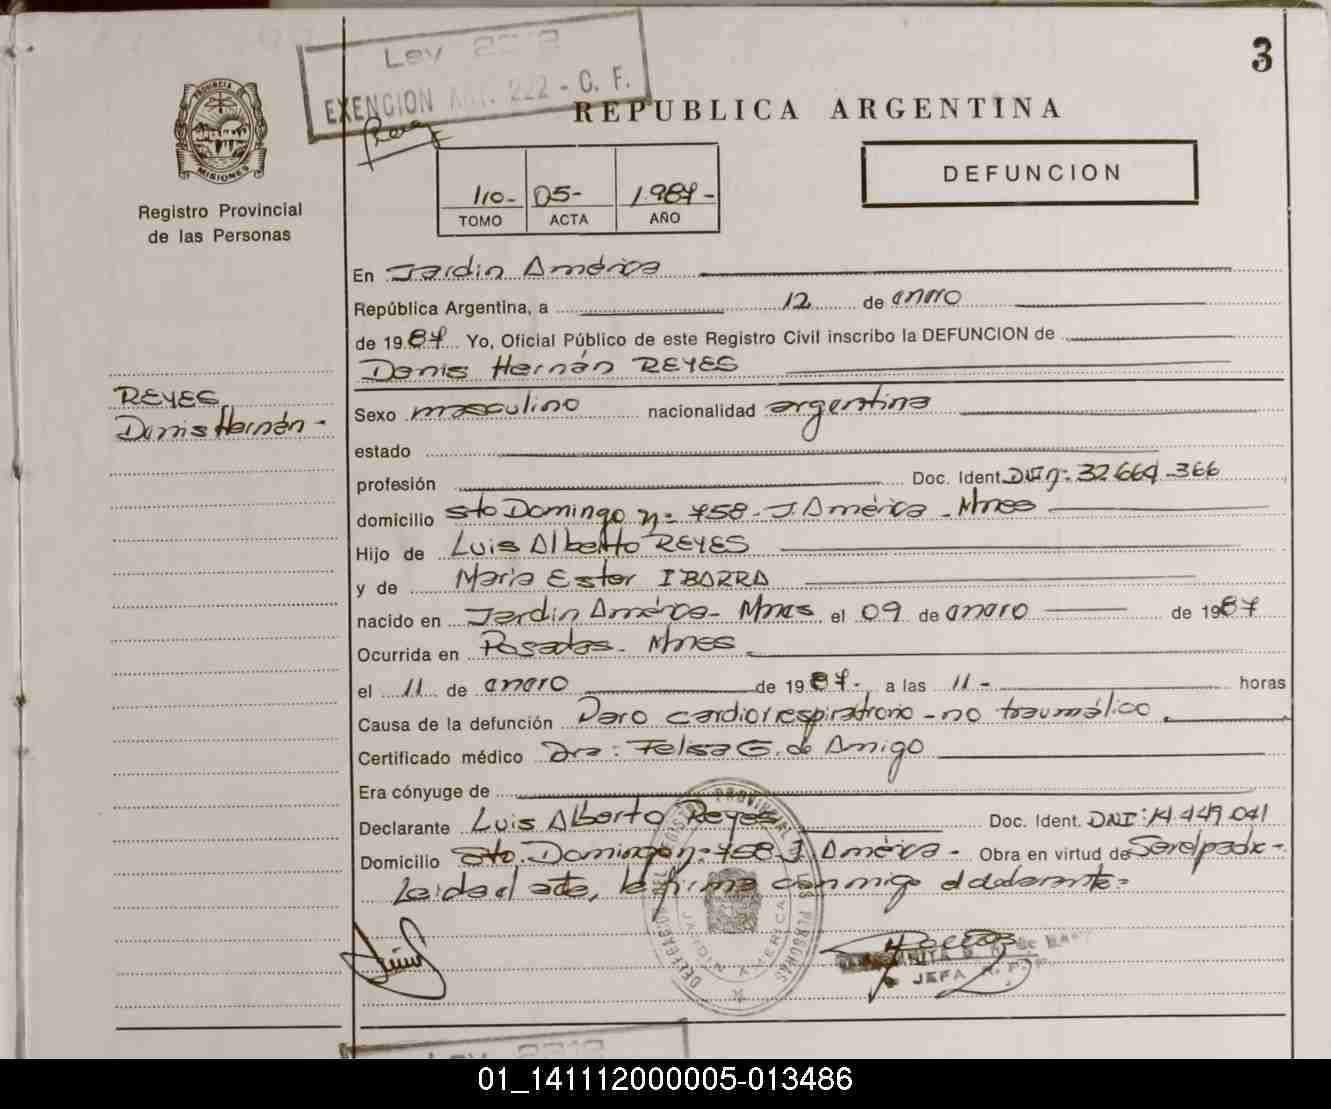 3
Ley 2312
EXENCION ART. 222 - C. F.
REPUBLICA ARGENTINA
PROVINCIA DE MISIONES
Registro Provincial
de las Personas
DEFUNCION
110- 05- 1.987-
TOMO ACTA AÑO
En Jardin América
República Argentina, a 12 de enero
de 1987 Yo, Oficial Público de este Registro Civil inscribo la DEFUNCION de
Denis Hernán REYES
REYES
Denis Hernán -
Sexo masculino nacionalidad argentina
estado
profesión Doc. Ident. DNI nº: 32.664.366
domicilio Sto Domingo nº 758 - J. América - Mnes
Hijo de Luis Alberto REYES
y de Maria Ester IBARRA
nacido en Jardin América - Mnes el 09 de enero de 1987
Ocurrida en Posadas - Mnes
el 11 de enero de 1987- a las 11 - horas
Causa de la defunción Paro cardiorrespiratorio - no traumático.
Certificado médico Dra: Felisa G. de Amigo
Era cónyuge de
Declarante Luis Alberto Reyes Doc. Ident. DNI: 14.449.041
Domicilio Sto. Domingo nº 758 J. América - Obra en virtud de Ser el padre -
Leida el acta, la firma conmigo el declarante -
JARDIN AMERICA
JEFA
Ley 2312
01_141112000005-013486